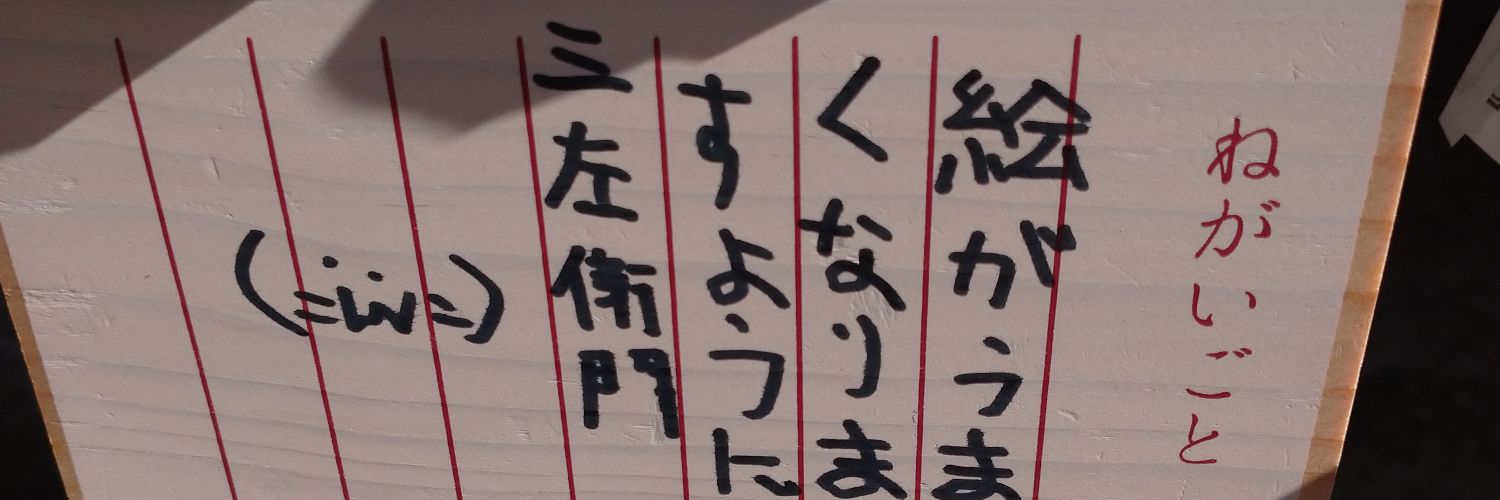 ねがいごと
絵がうま
くなりま
すように
三左衛門
(=ω=)